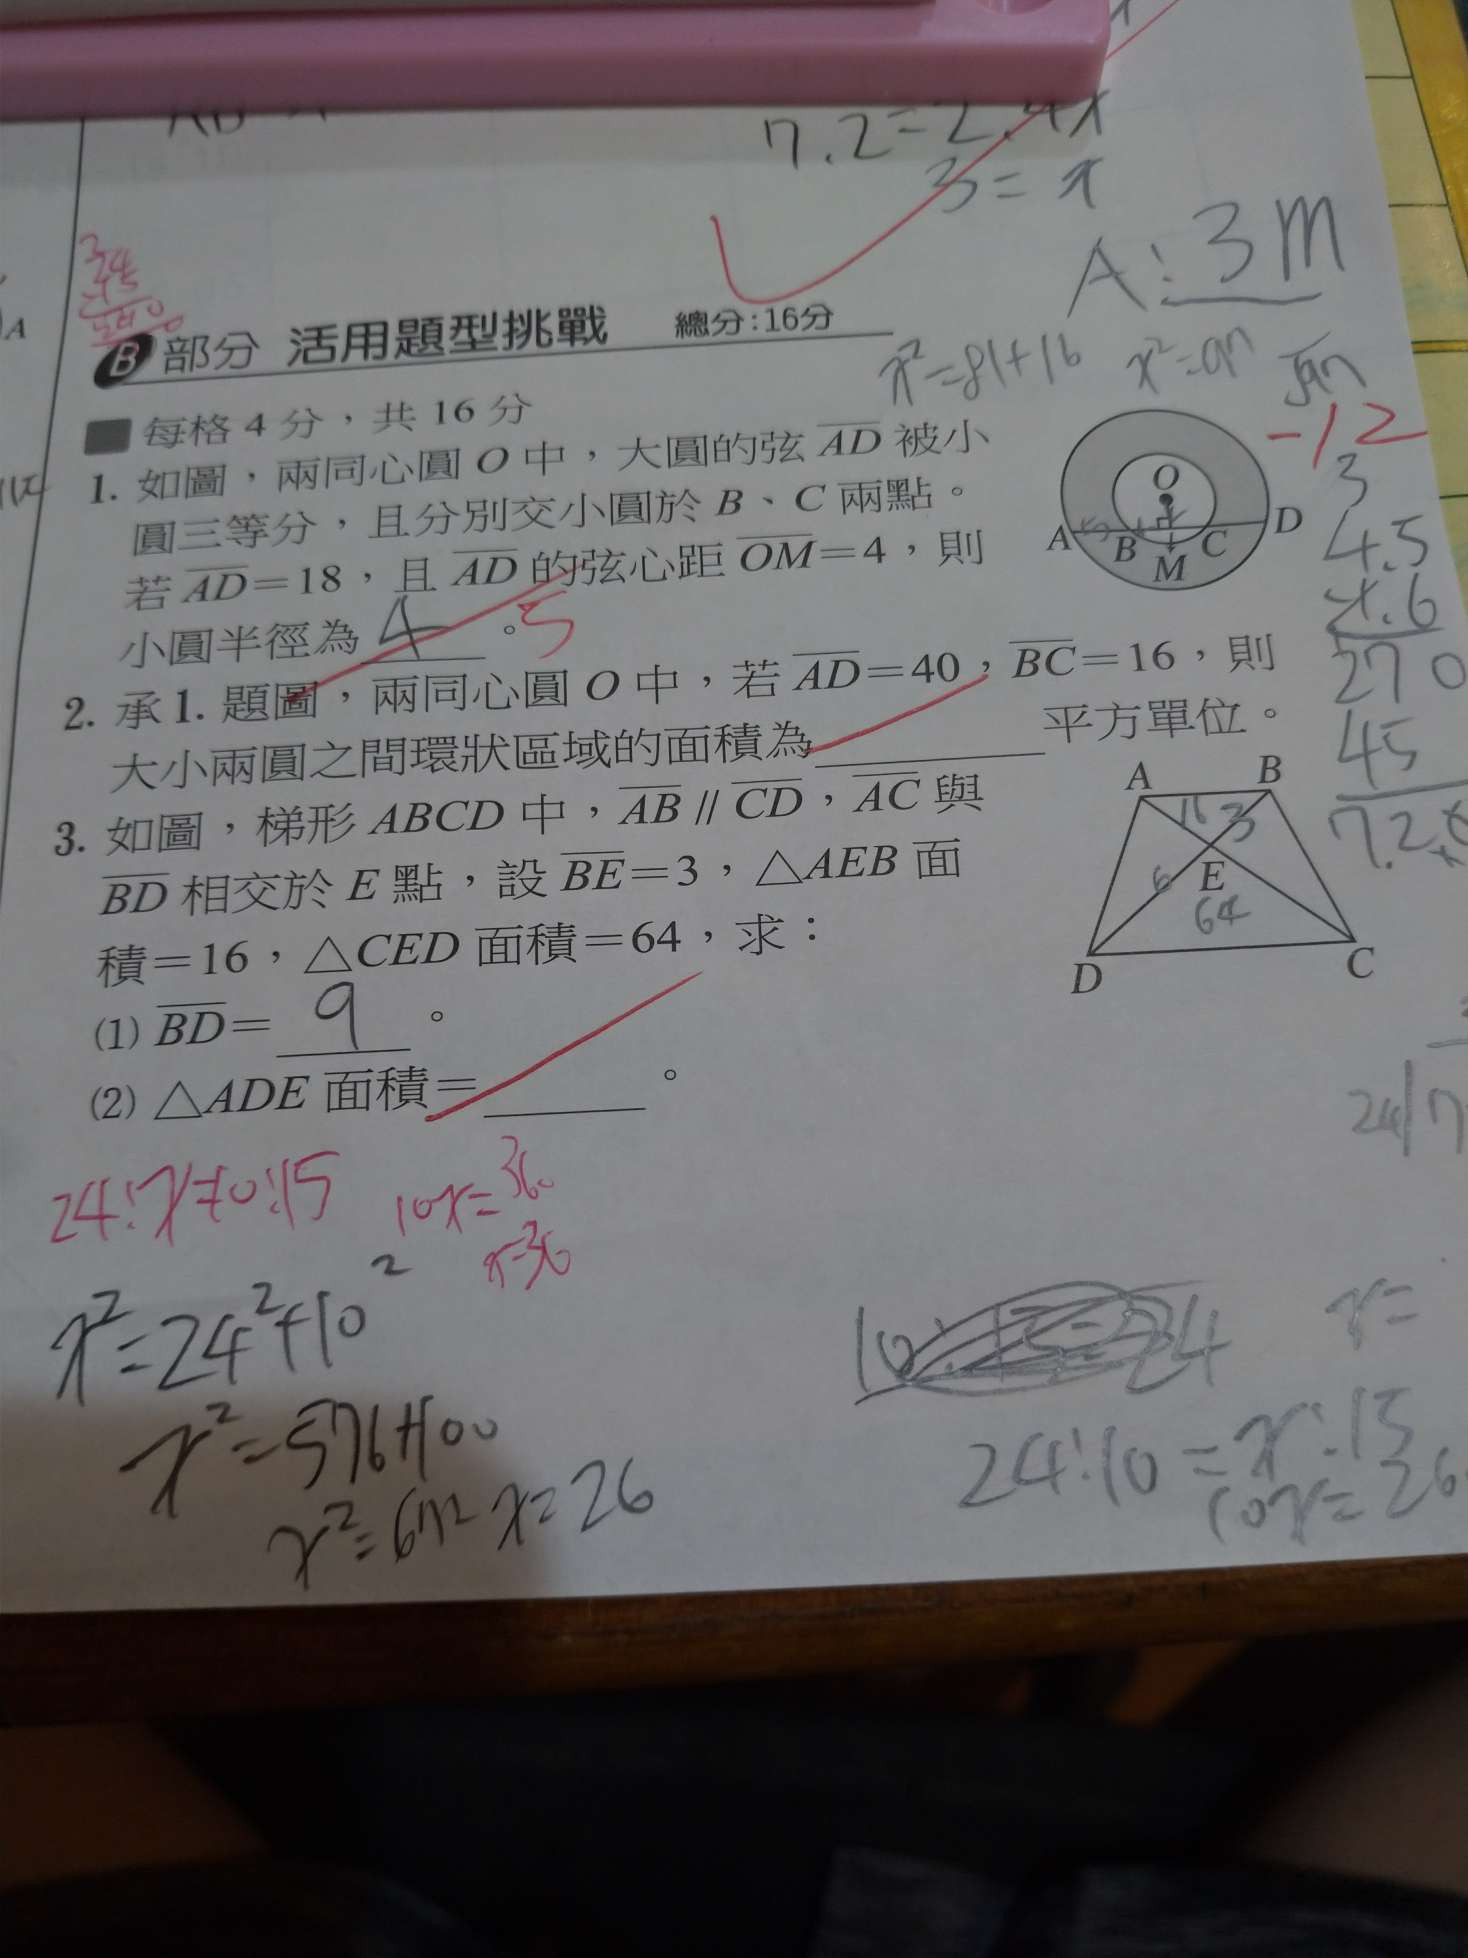 7.2=2.4x
3=x
A:3m
B 部分 活用題型挑戰 總分:16分
x²=81+16 x²=97 √97
-12
■ 每格 4 分,共 16 分
1. 如圖,兩同心圓 O 中,大圓的弦 AD 被小
圓三等分,且分別交小圓於 B、C 兩點。
若 AD=18,且 AD 的弦心距 OM=4,則
小圓半徑為 4 。 5
O
A B M C D
3
4.5
270
45
7.2
2. 承 1. 題圖,兩同心圓 O 中,若 AD=40,BC=16,則
大小兩圓之間環狀區域的面積為 平方單位。
3. 如圖,梯形 ABCD 中,AB // CD,AC 與
BD 相交於 E 點,設 BE=3,△AEB 面
積=16,△CED 面積=64,求:
(1) BD= 9 。
(2) △ADE 面積= 。
A B
16 3
6 E
64
D C
24:x=10:15 10x=360
x=36
x²=24²+10²
x²=576+100
x²=676 x=26
x=
24:10=x:15